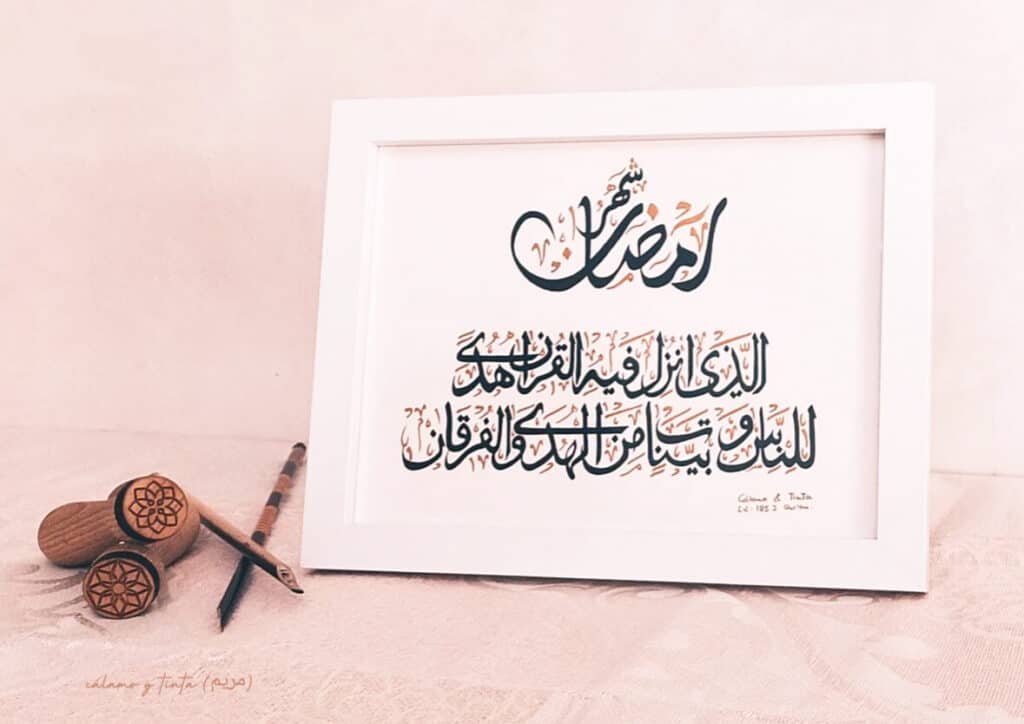 شهر
رمضان
الذي انزل فيه القران هدى
للناس وبينات من الهدى والفرقان
Cálamo & Tinta
cálamo y tinta (مريم)